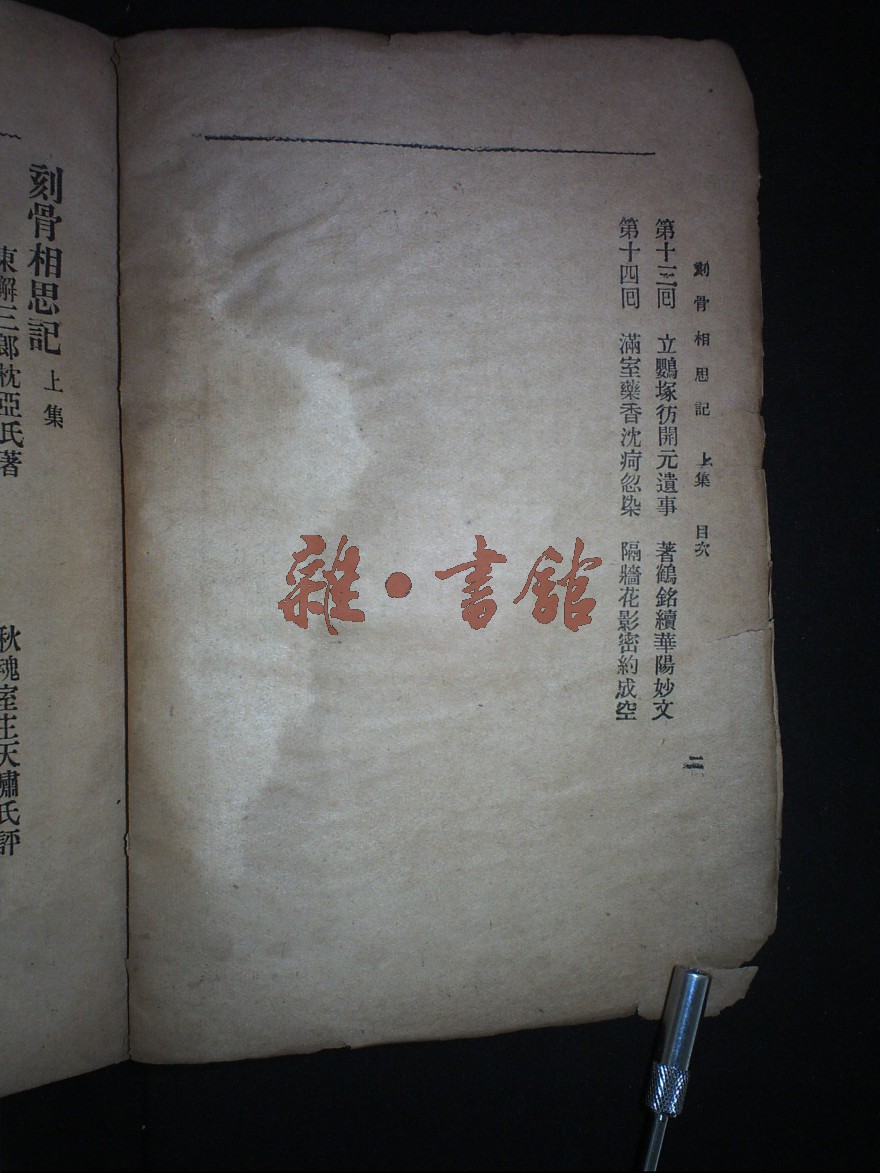 刻骨相思記 上集 目次 二
第十三回 立鸚塚彷開元遺事 著鶴銘續華陽妙文
第十四回 滿室藥香沈疴忽染 隔牆花影密約成空
雜·書館
刻骨相思記 上集
東海三郎枕亞氏著 秋魂室主天嘯氏評